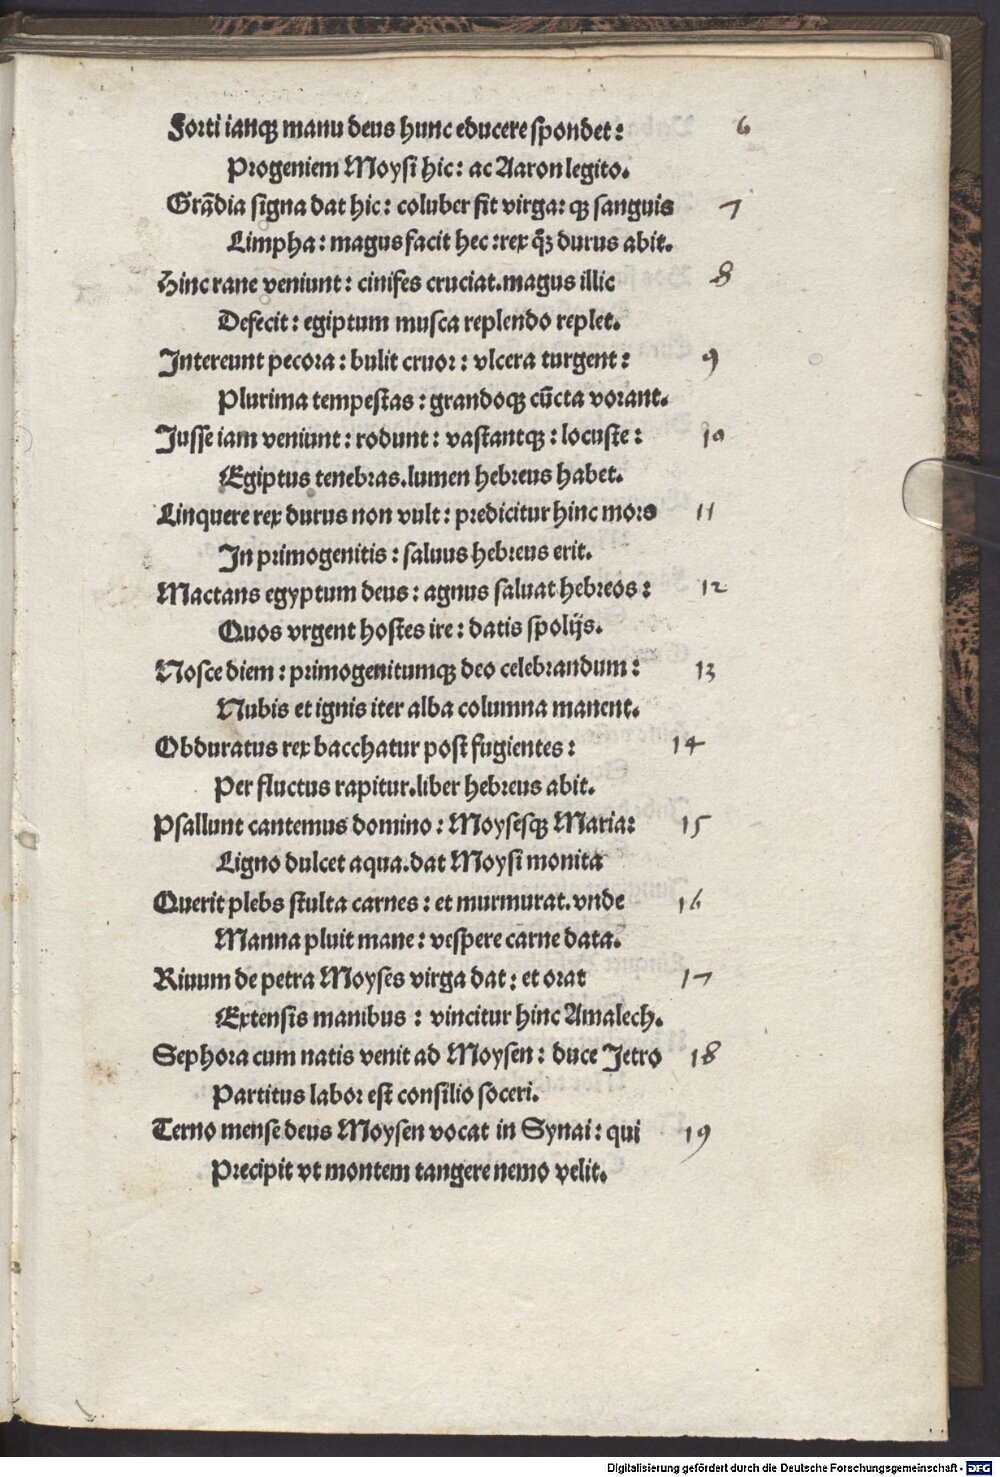 Forti ianqꝫ manu deus hunc educere spondet: 6
Progeniem Moysi hic: ac Aaron legito.
Grãdia signa dat hic: coluber fit virga: qꝫ sanguis 7
Limpha: magus facit hec: rex q̃ꝫ durus abit.
Hinc rane veniunt: cinifes cruciat. magus illic 8
Defecit: egiptum musca replendo replet.
Intereunt pecora: bulit cruor: vlcera turgent: 9
Plurima tempestas: grandoqꝫ cũcta vorant.
Jusse iam veniunt: rodunt: vastantqꝫ: locuste: 10
Egiptus tenebras. lumen hebreus habet.
Linquere rex durus non vult: predicitur hinc mors 11
In primogenitis: saluus hebreus erit.
Mactans egyptum deus: agnus saluat hebreos: 12
Quos vrgent hostes ire: datis spolijs.
Nosce diem: primogenitumqꝫ deo celebrandum: 13
Nubis et ignis iter alba columna manent.
Obduratus rex bacchatur post fugientes: 14
Per fluctus rapitur. liber hebreus abit.
Psallunt cantemus domino: Moysesqꝫ Maria: 15
Ligno dulcet aqua. dat Moysi monita
Querit plebs stulta carnes: et murmurat. vnde 16
Manna pluit mane: vespere carne data.
Riuum de petra Moyses virga dat: et orat 17
Extensis manibus: vincitur hinc Amalech.
Sephora cum natis venit ad Moysen: duce Jetro 18
Partitus labor est consilio soceri.
Terno mense deus Moysen vocat in Synai: qui 19
Precipit vt montem tangere nemo velit.
Digitalisierung gefördert durch die Deutsche Forschungsgemeinschaft - DFG